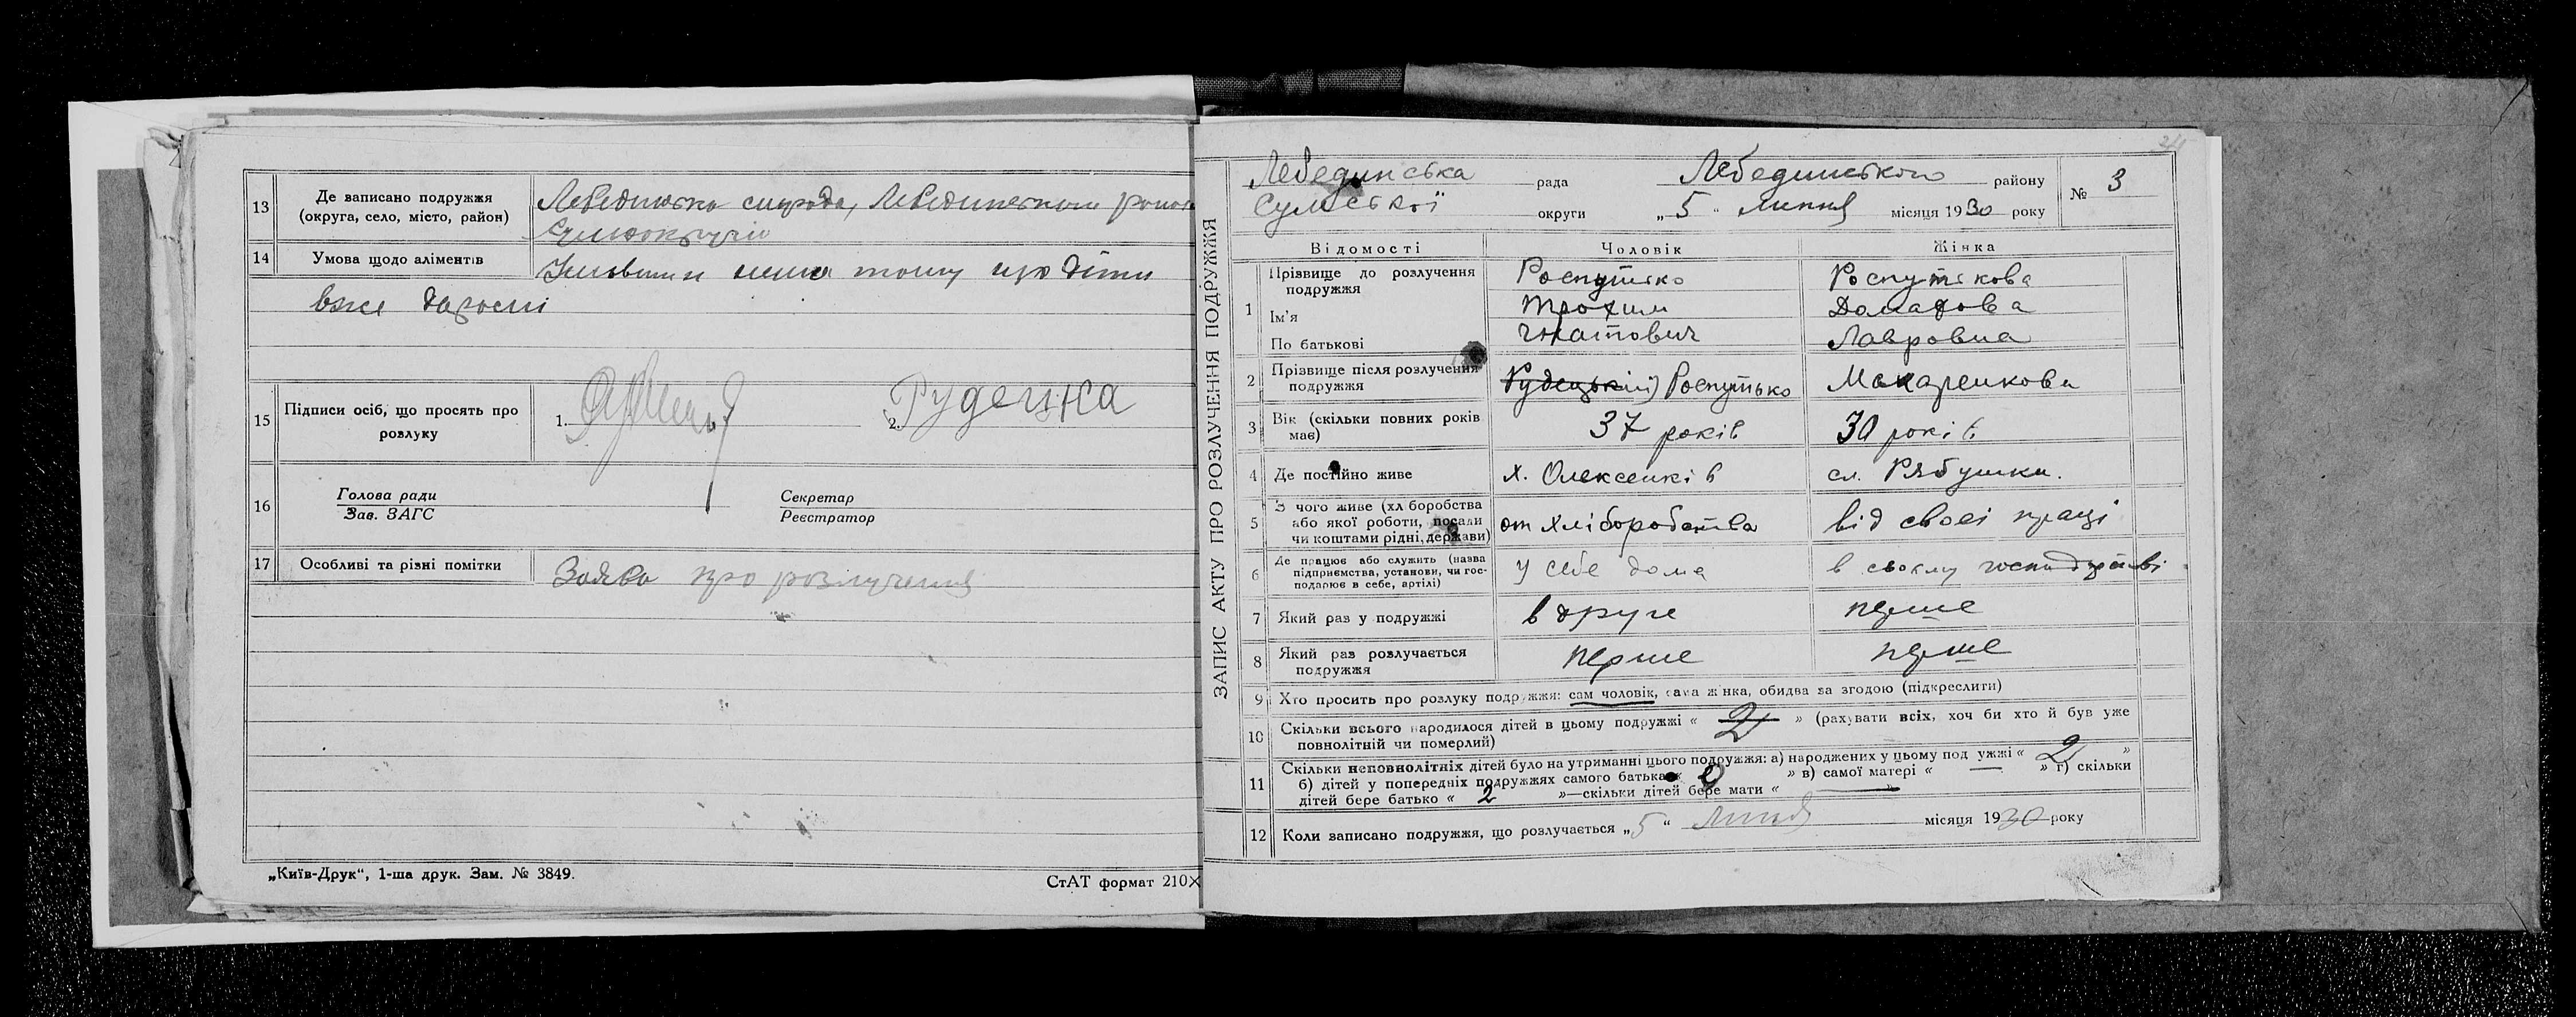 13 Де записано подружжя (округа, село, місто, район) Лебединська сільрада, Лебединського району
14 Умова щодо аліментів Умовини нема тому що діти
вже дорослі
15 Підписи осіб, що просять про розлуку 1. 2. Руденка
16 Голова ради Секретар
Зав. ЗАГС Реєстратор
17 Особливі та різні помітки Заява про розлучення
„Київ-Друк“, 1-ша друк. Зам. № 3849.
СтАТ формат 210×
ЗАПИС АКТУ ПРО РОЗЛУЧЕННЯ ПОДРУЖЖЯ
Лебединська рада Лебединського району № 3
Сумської округи „5“ липня місяця 1930 року
Відомості Чоловік Жінка
1 Прізвище до розлучення подружжя Роспутько Роспутькова
Ім'я Трохим
По батькові Гнатович Лавровна
2 Прізвище після розлучення подружжя Роспутько Макаренкова
3 Вік (скільки повних років має) 37 років 30 років
4 Де постійно живе х. Олексенків сл. Рябушки.
5 З чого живе (хліборобства або якої роботи, посади чи коштами рідні, держави) от хліборобства від своеі праці
6 Де працює або служить (назва підприємства, установи, чи господарює в себе, артілі) у себе дома в своєму господарстві
7 Який раз у подружжі вдруге перше
8 Який раз розлучається подружжя перше перше
9 Хто просить про розлуку подружжя: сам чоловік, сама жінка, обидва за згодою (підкреслити)
10 Скільки всього народилося дітей в цьому подружжі « 2 » (рахувати всіх, хоч би хто й був уже
повнолітній чи померлий)
11 Скільки неповнолітніх дітей було на утриманні цього подружжя: а) народжених у цьому подружжі « 2 »
б) дітей у попередніх подружжях самого батька « 0 » в) самої матері « — » г) скільки
дітей бере батько « 2 »—скільки дітей бере мати « — »
12 Коли записано подружжя, що розлучається „5“ липня місяця 1930 року